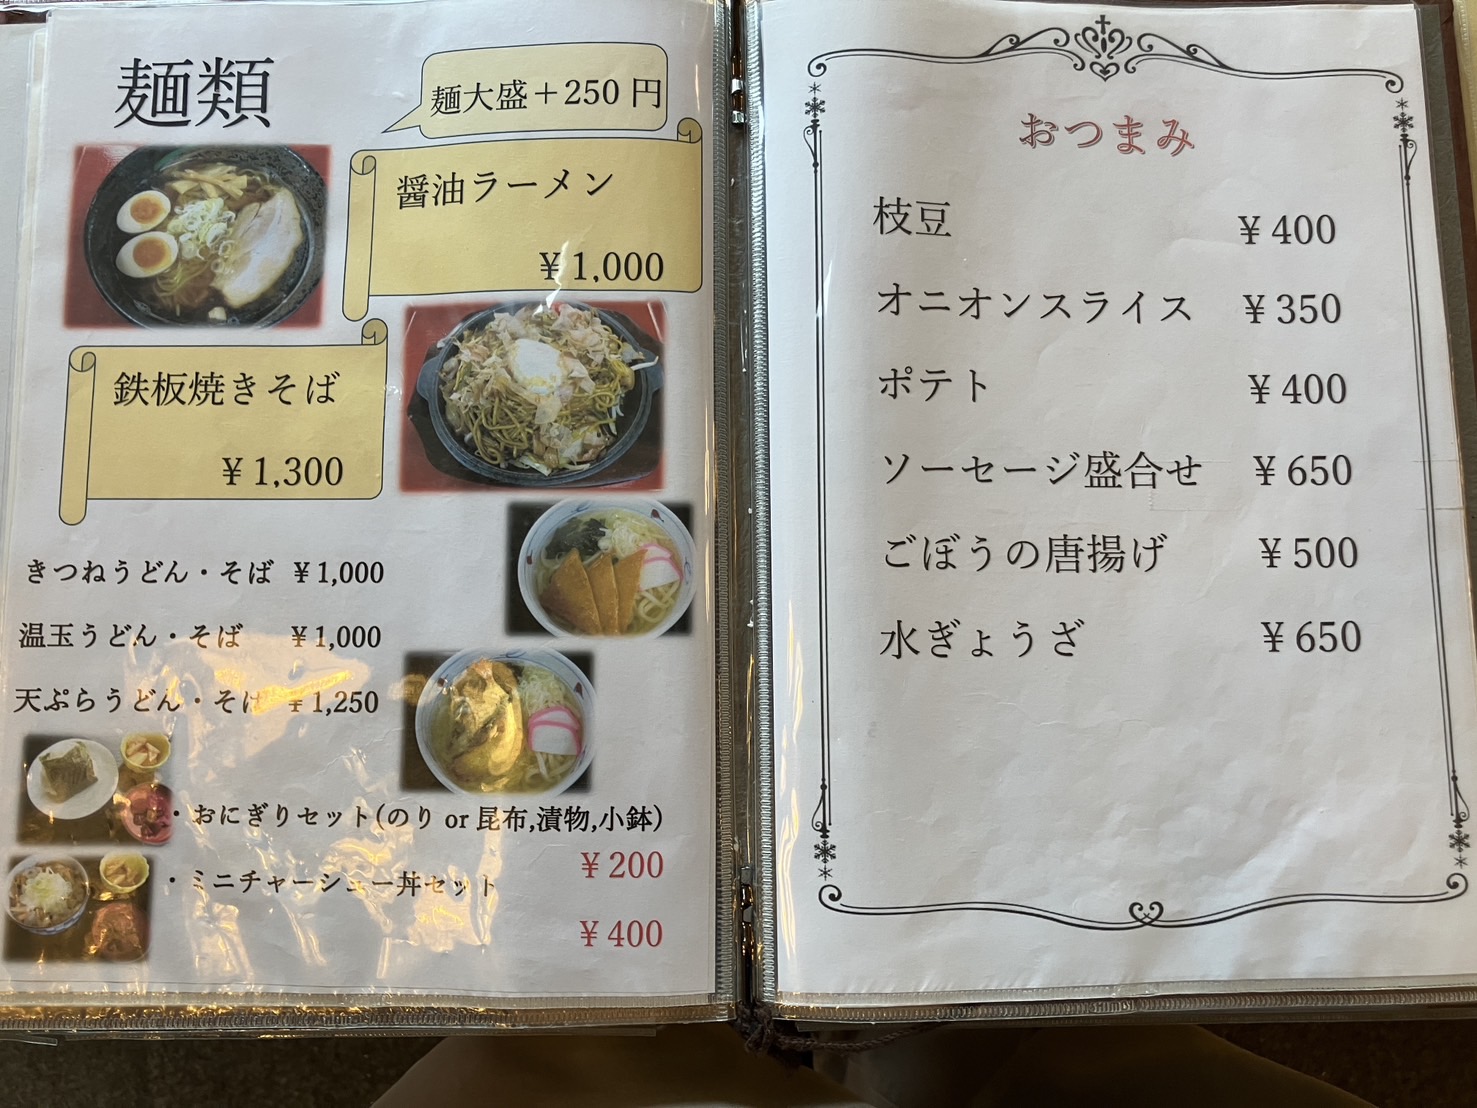 麺類
麺大盛＋250 円
醤油ラーメン
￥1,000
鉄板焼きそば
￥1,300
きつねうどん・そば ￥1,000
温玉うどん・そば ￥1,000
天ぷらうどん・そば ￥1,250
・おにぎりセット(のり or 昆布,漬物,小鉢)
￥200
・ミニチャーシュー丼セット
￥400
おつまみ
枝豆 ￥400
オニオンスライス ￥350
ポテト ￥400
ソーセージ盛合せ ￥650
ごぼうの唐揚げ ￥500
水ぎょうざ ￥650